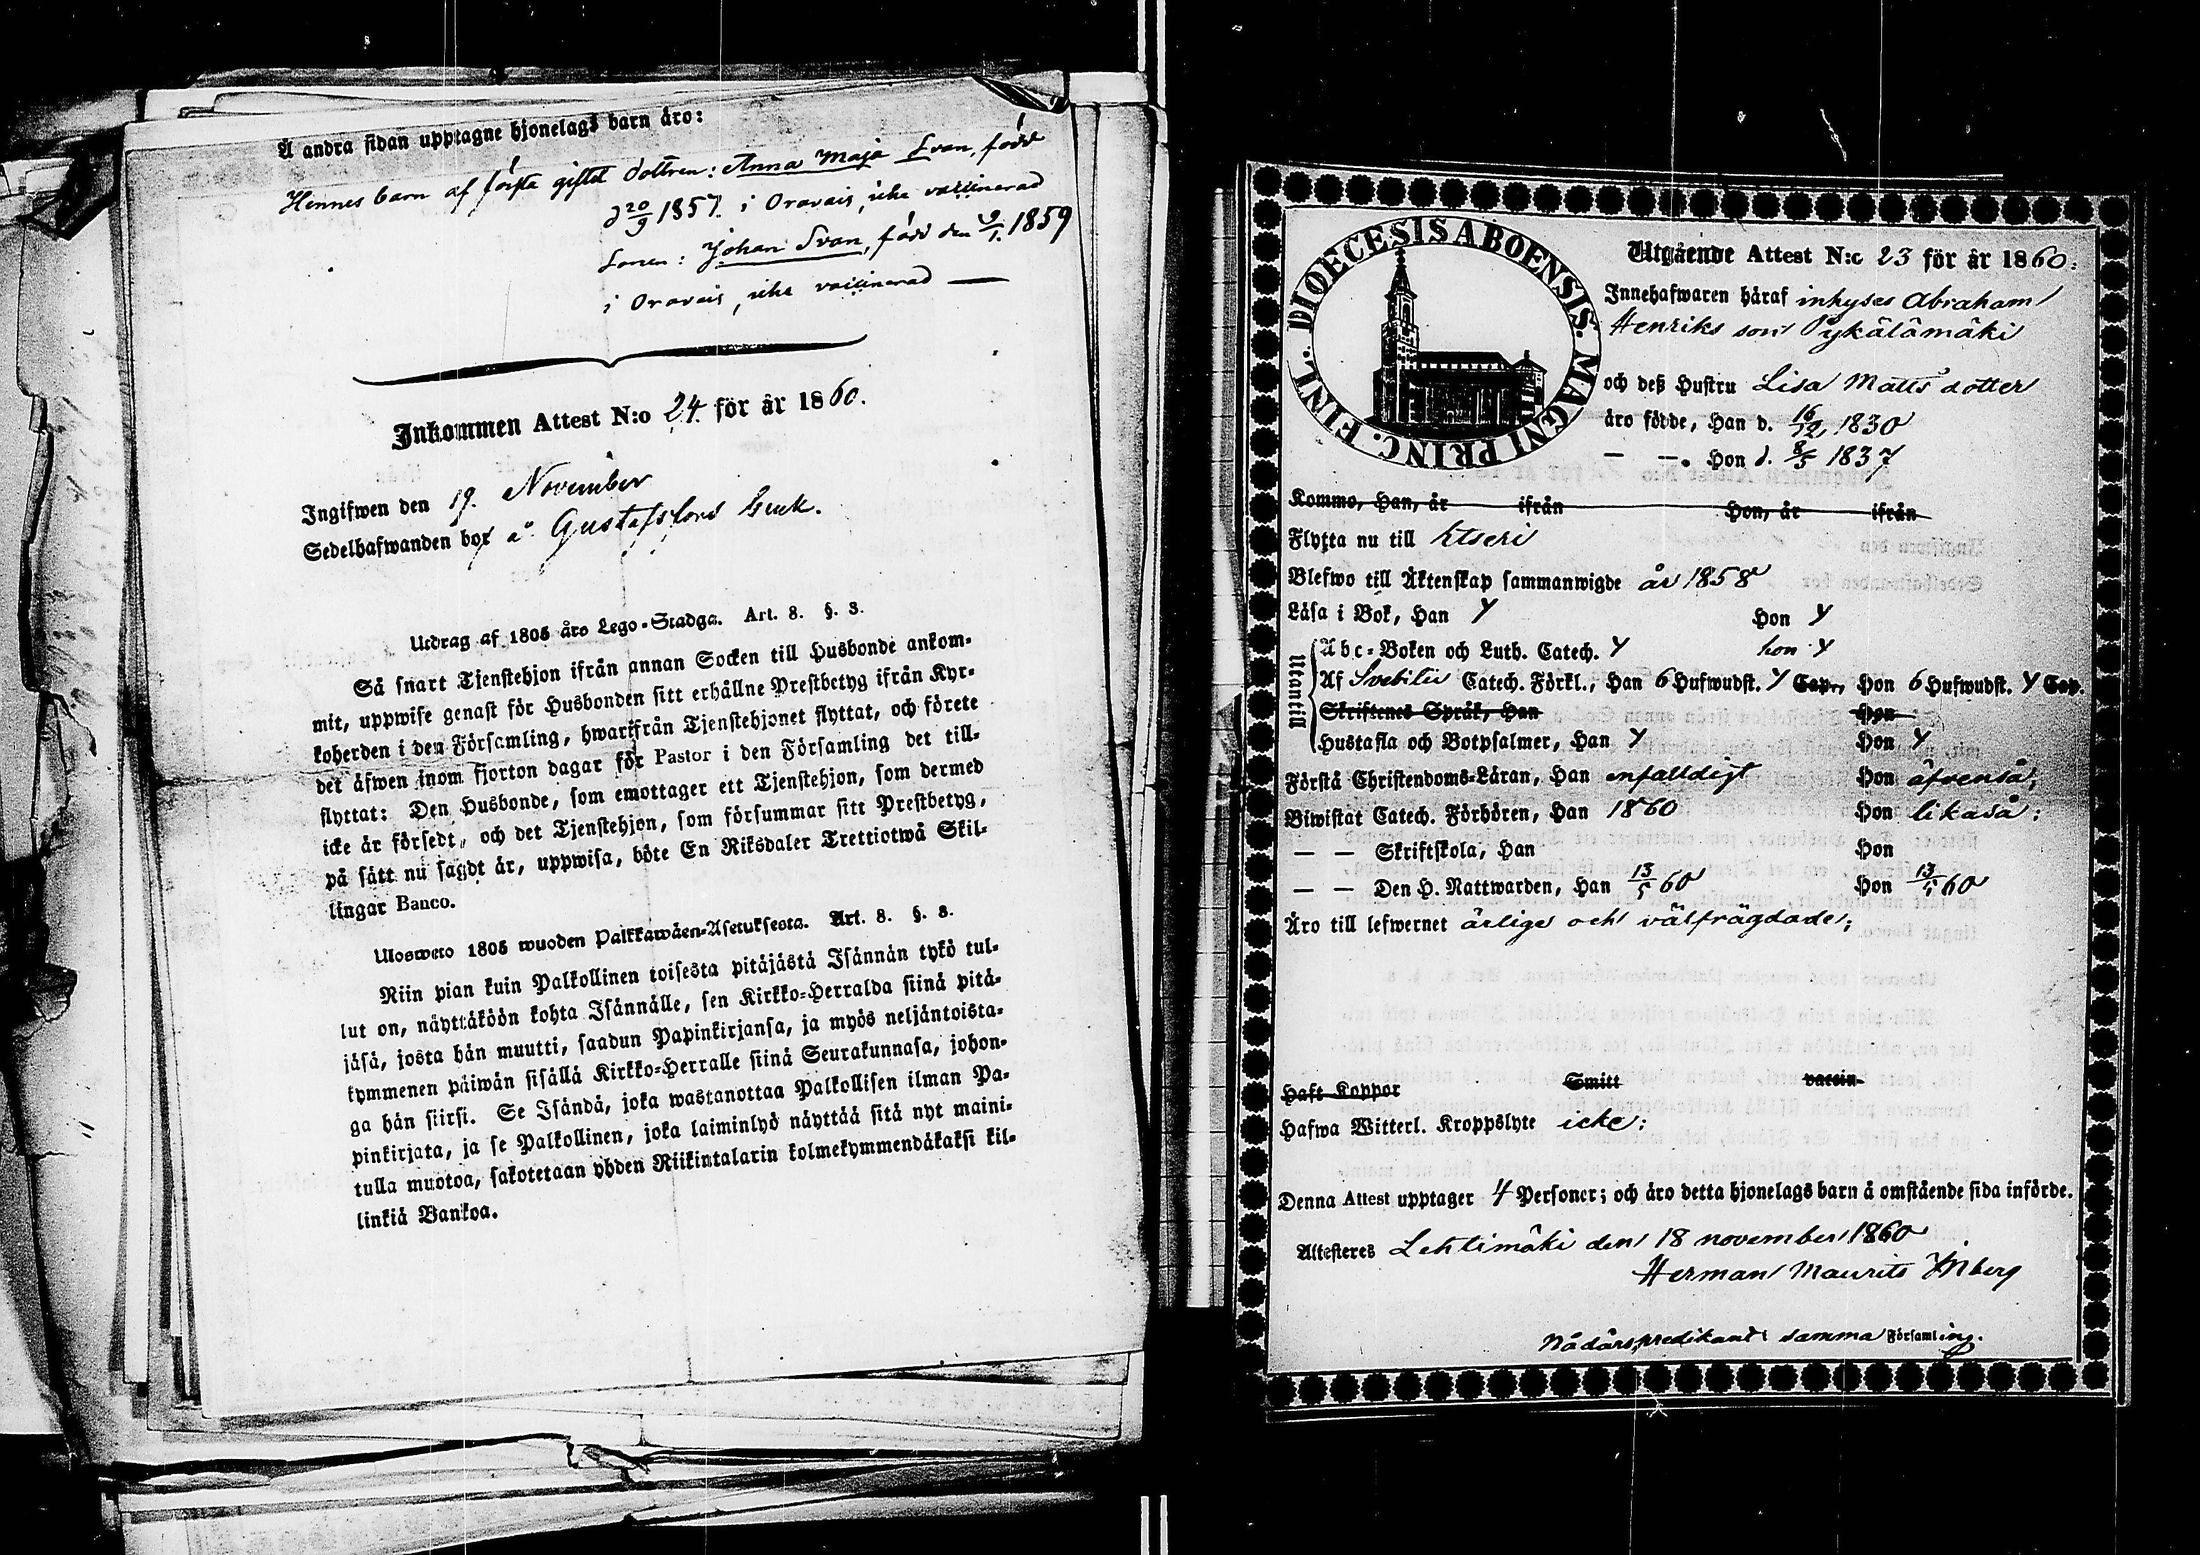 Å andra sidan upptagne hjonelags barn äro:
Hennes barn af första giftet dottren: Anna Maja Svan, född
d 20/9 1857. i Oravais, icke vaccinerad
Sonen: Johan Svan, född den 9/1. 1859
i Oravais, icke vaccinerad —
Inkommen Attest N:o 24. för år 1860.
Ingifwen den 19. November
Sedelhafwanden bor å Gustafsfors bruk.
Utdrag af 1805 års Lego-Stadga. Art. 8. §. 3.
Så snart Tjenstehjon ifrån annan Socken till Husbonde ankom-
mit, uppwise genast för Husbonden sitt erhållne Prestbetyg ifrån Kyr-
koherden i den Församling, hwarifrån Tjenstehjonet flyttat, och förete
det äfwen inom fjorton dagar för Pastor i den Församling det till-
flyttat: Den Husbonde, som emottager ett Tjenstehjon, som dermed
icke är försedt, och det Tjenstehjon, som försummar sitt Prestbetyg,
på sätt nu sagdt är, uppwisa, böte En Riksdaler Trettiotwå Skil-
lingar Banco.
Ulosweto 1805 wuoden Palkkawäen-Asetuksesta. Art. 8. §. 3.
Niin pian kuin Palkollinen toisesta pitäjästä Isännän tykö tul-
lut on, näyttäköön kohta Isännälle, sen Kirkko-Herralda siinä pitä-
jäsä, josta hän muutti, saadun Papinkirjansa, ja myös neljäntoista-
kymmenen päiwän sisällä Kirkko-Herralle siinä Seurakunnasa, johon-
ga hän siirsi. Se Isändä, joka wastanottaa Palkollisen ilman Pa-
pinkirjata, ja se Palkollinen, joka laiminlyö näyttää sitä nyt maini-
tulla muotoa, sakotetaan yhden Riikintalarin kolmekymmendäkaksi kil-
linkiä Bankoa.
FINL. DIOECESIS ABOENSIS. MAGNI PRINC.
Utgående Attest N:o 23 för år 1860:
Innehafwaren häraf inhyses Abraham
Henriks son Pykälämäki
och deß Hustru Lisa Matts dotter
äro födde, Han d. 16/12 1830
— —. Hon d. 8/5 1837
Komme, Han, år ifrån Hon, år ifrån
Flytta nu till Etseri
Blefwo till Äktenskap sammanwigde år 1858
Läsa i Bok, Han y Hon y
Utantill
Abc-Boken och Luth. Catech. y hon y
Af Svebilii Catech. Förkl., Han 6 Hufwudst. y Cap., Hon 6 Hufwudst. y Cap.
Skriftenes Språk, Han Hon
Hustafla och Botpsalmer, Han y Hon y
Förstå Christendoms-Läran, Han enfalldigt Hon äfvenså;
Biwistat Catech. Förhören, Han 1860 Hon likaså:
— — Skriftskola, Han Hon
— — Den H. Nattwarden, Han 13/5 60 Hon 13/5 60
Äro till lefwernet ärlige och välfrägdade;
Haft Koppor Smitt vaccin-
Hafwa Witterl. Kroppslyte icke:
Denna Attest upptager 4 Personer; och äro detta hjonelags barn å omstående sida införde.
Attesteres Lehtimäki den 18 november 1860
Herman Maurits
Nådårspredikant i samma Församling.